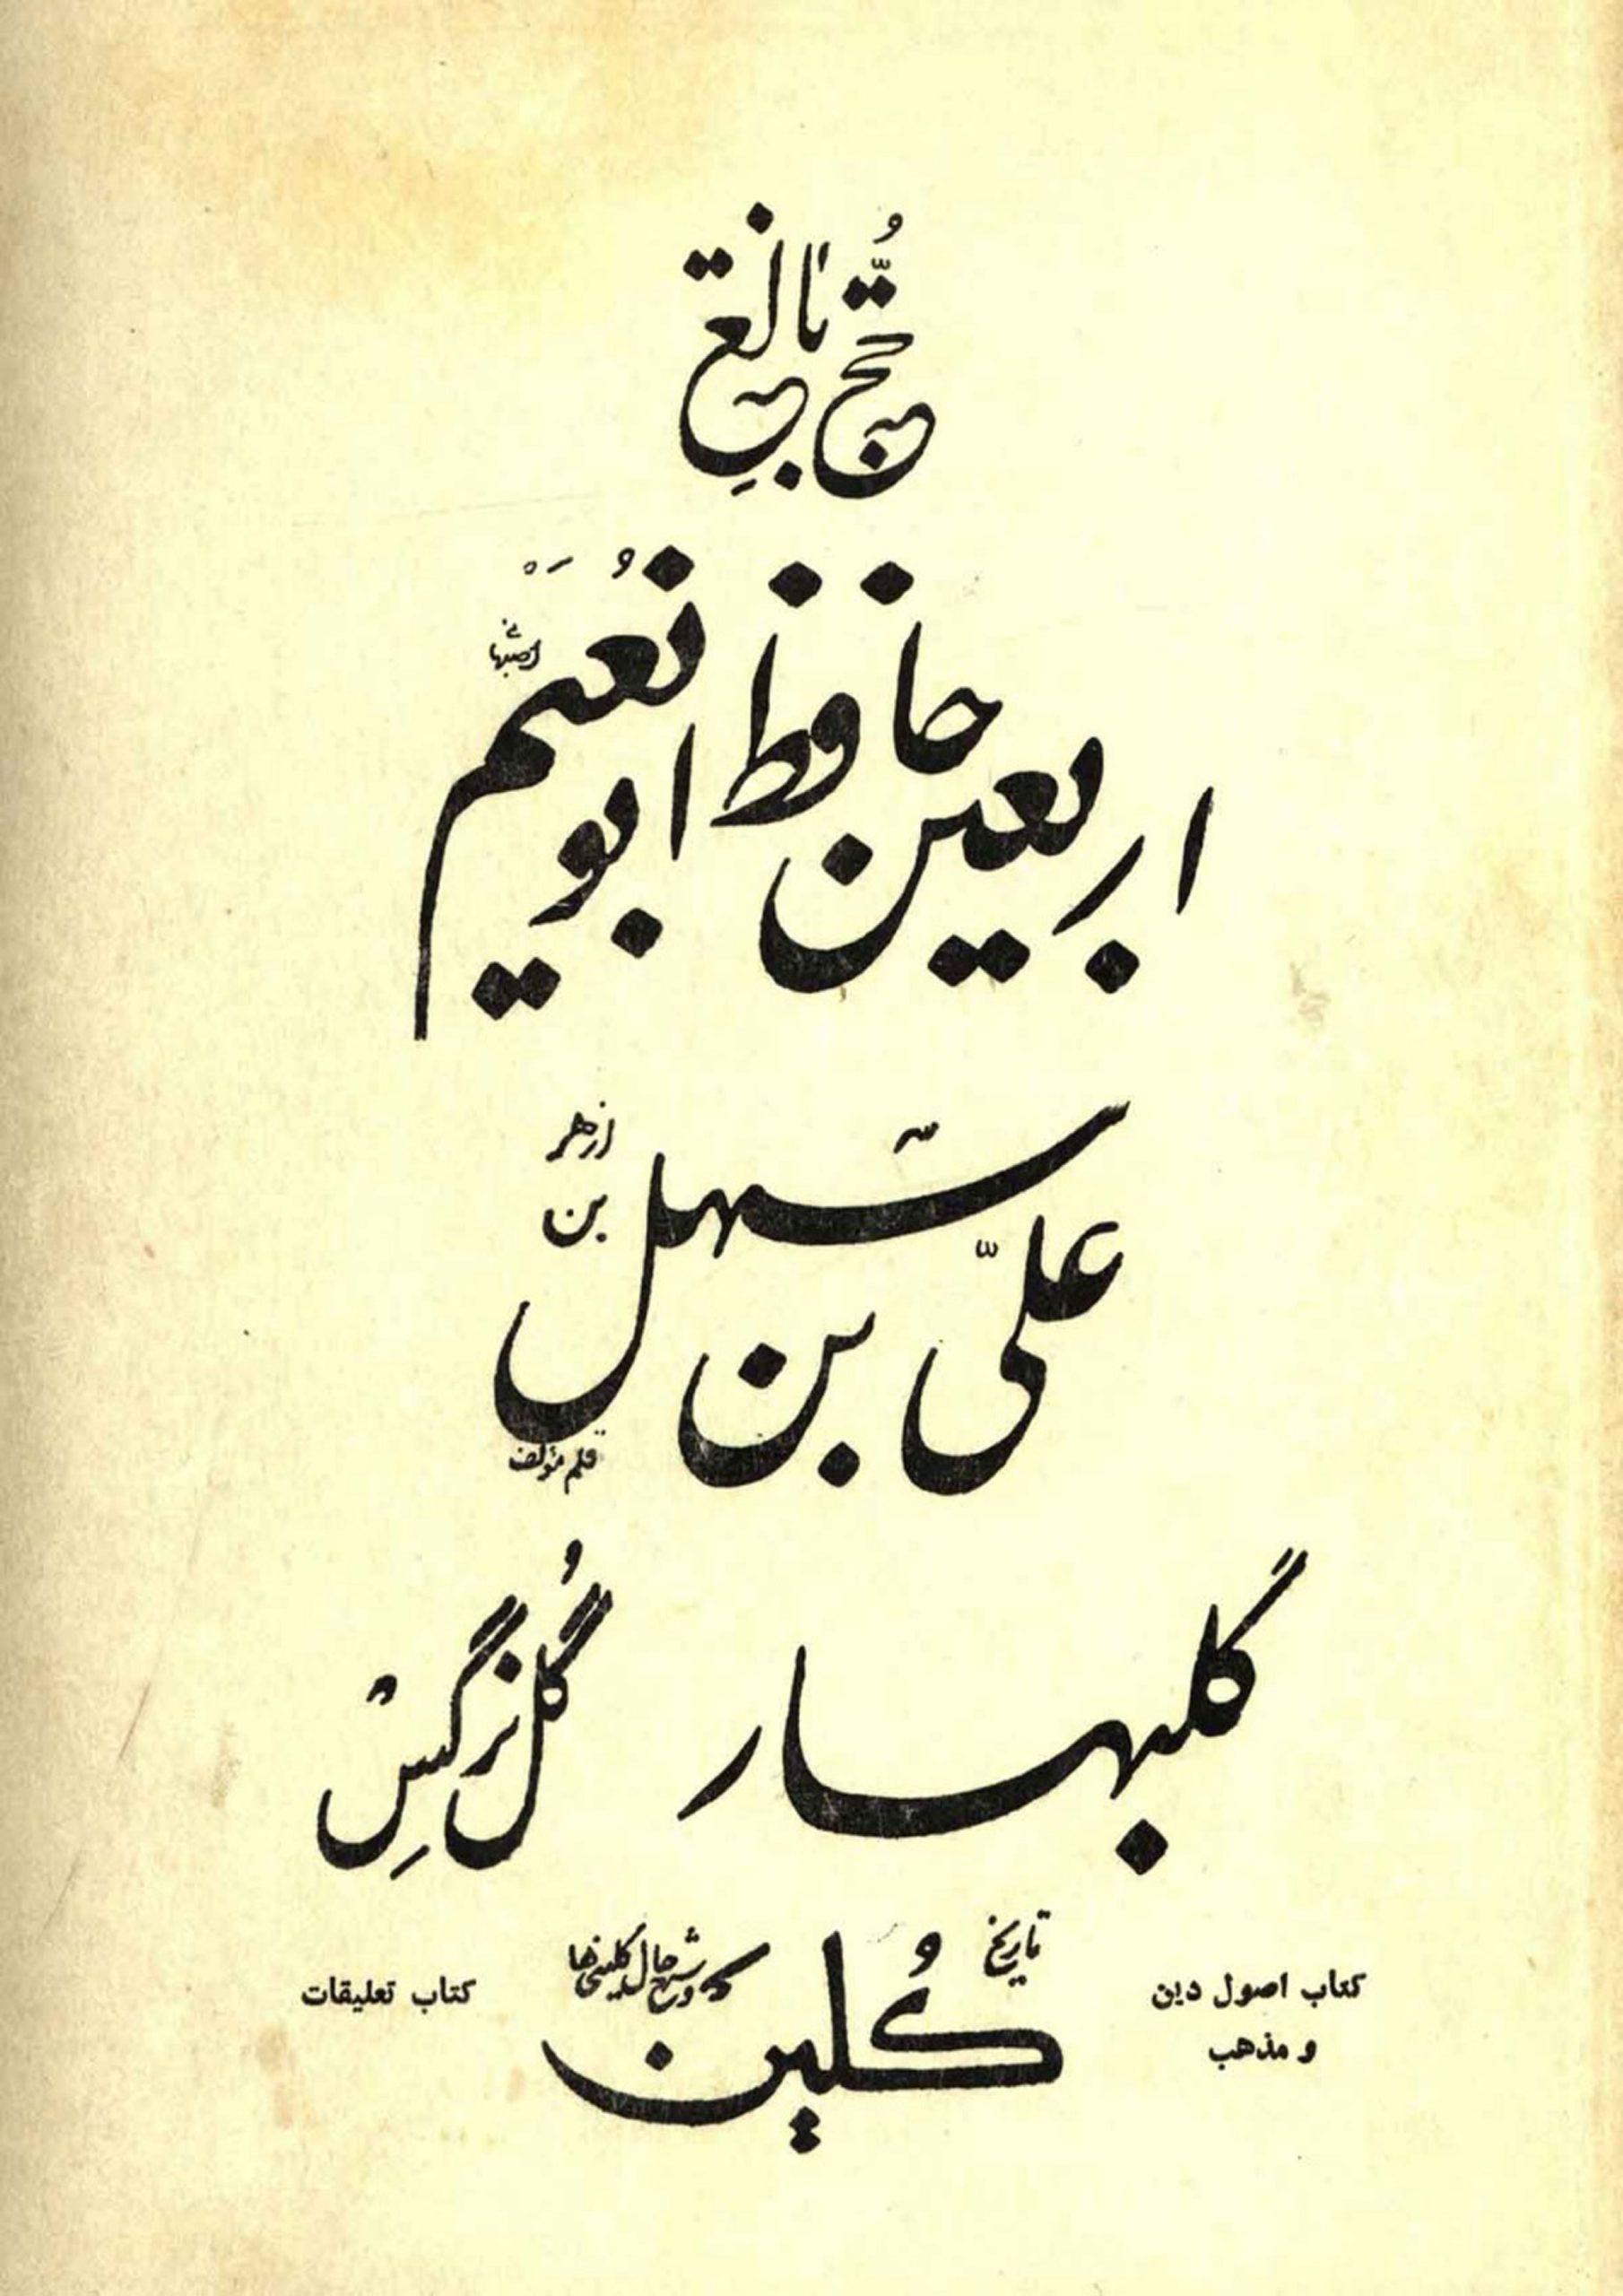 حُجّة بالِغة
اربعین حافظ ابو نُعَیْم
اصبهانی
علیّ بن سهل
بن ازهر
قلم مؤلف
گلبهار
گُل نرگسِ
تاریخ
کُلین
و شرح حال کلینی‌ها
کتاب اصول دین
و مذهب
کتاب تعلیقات